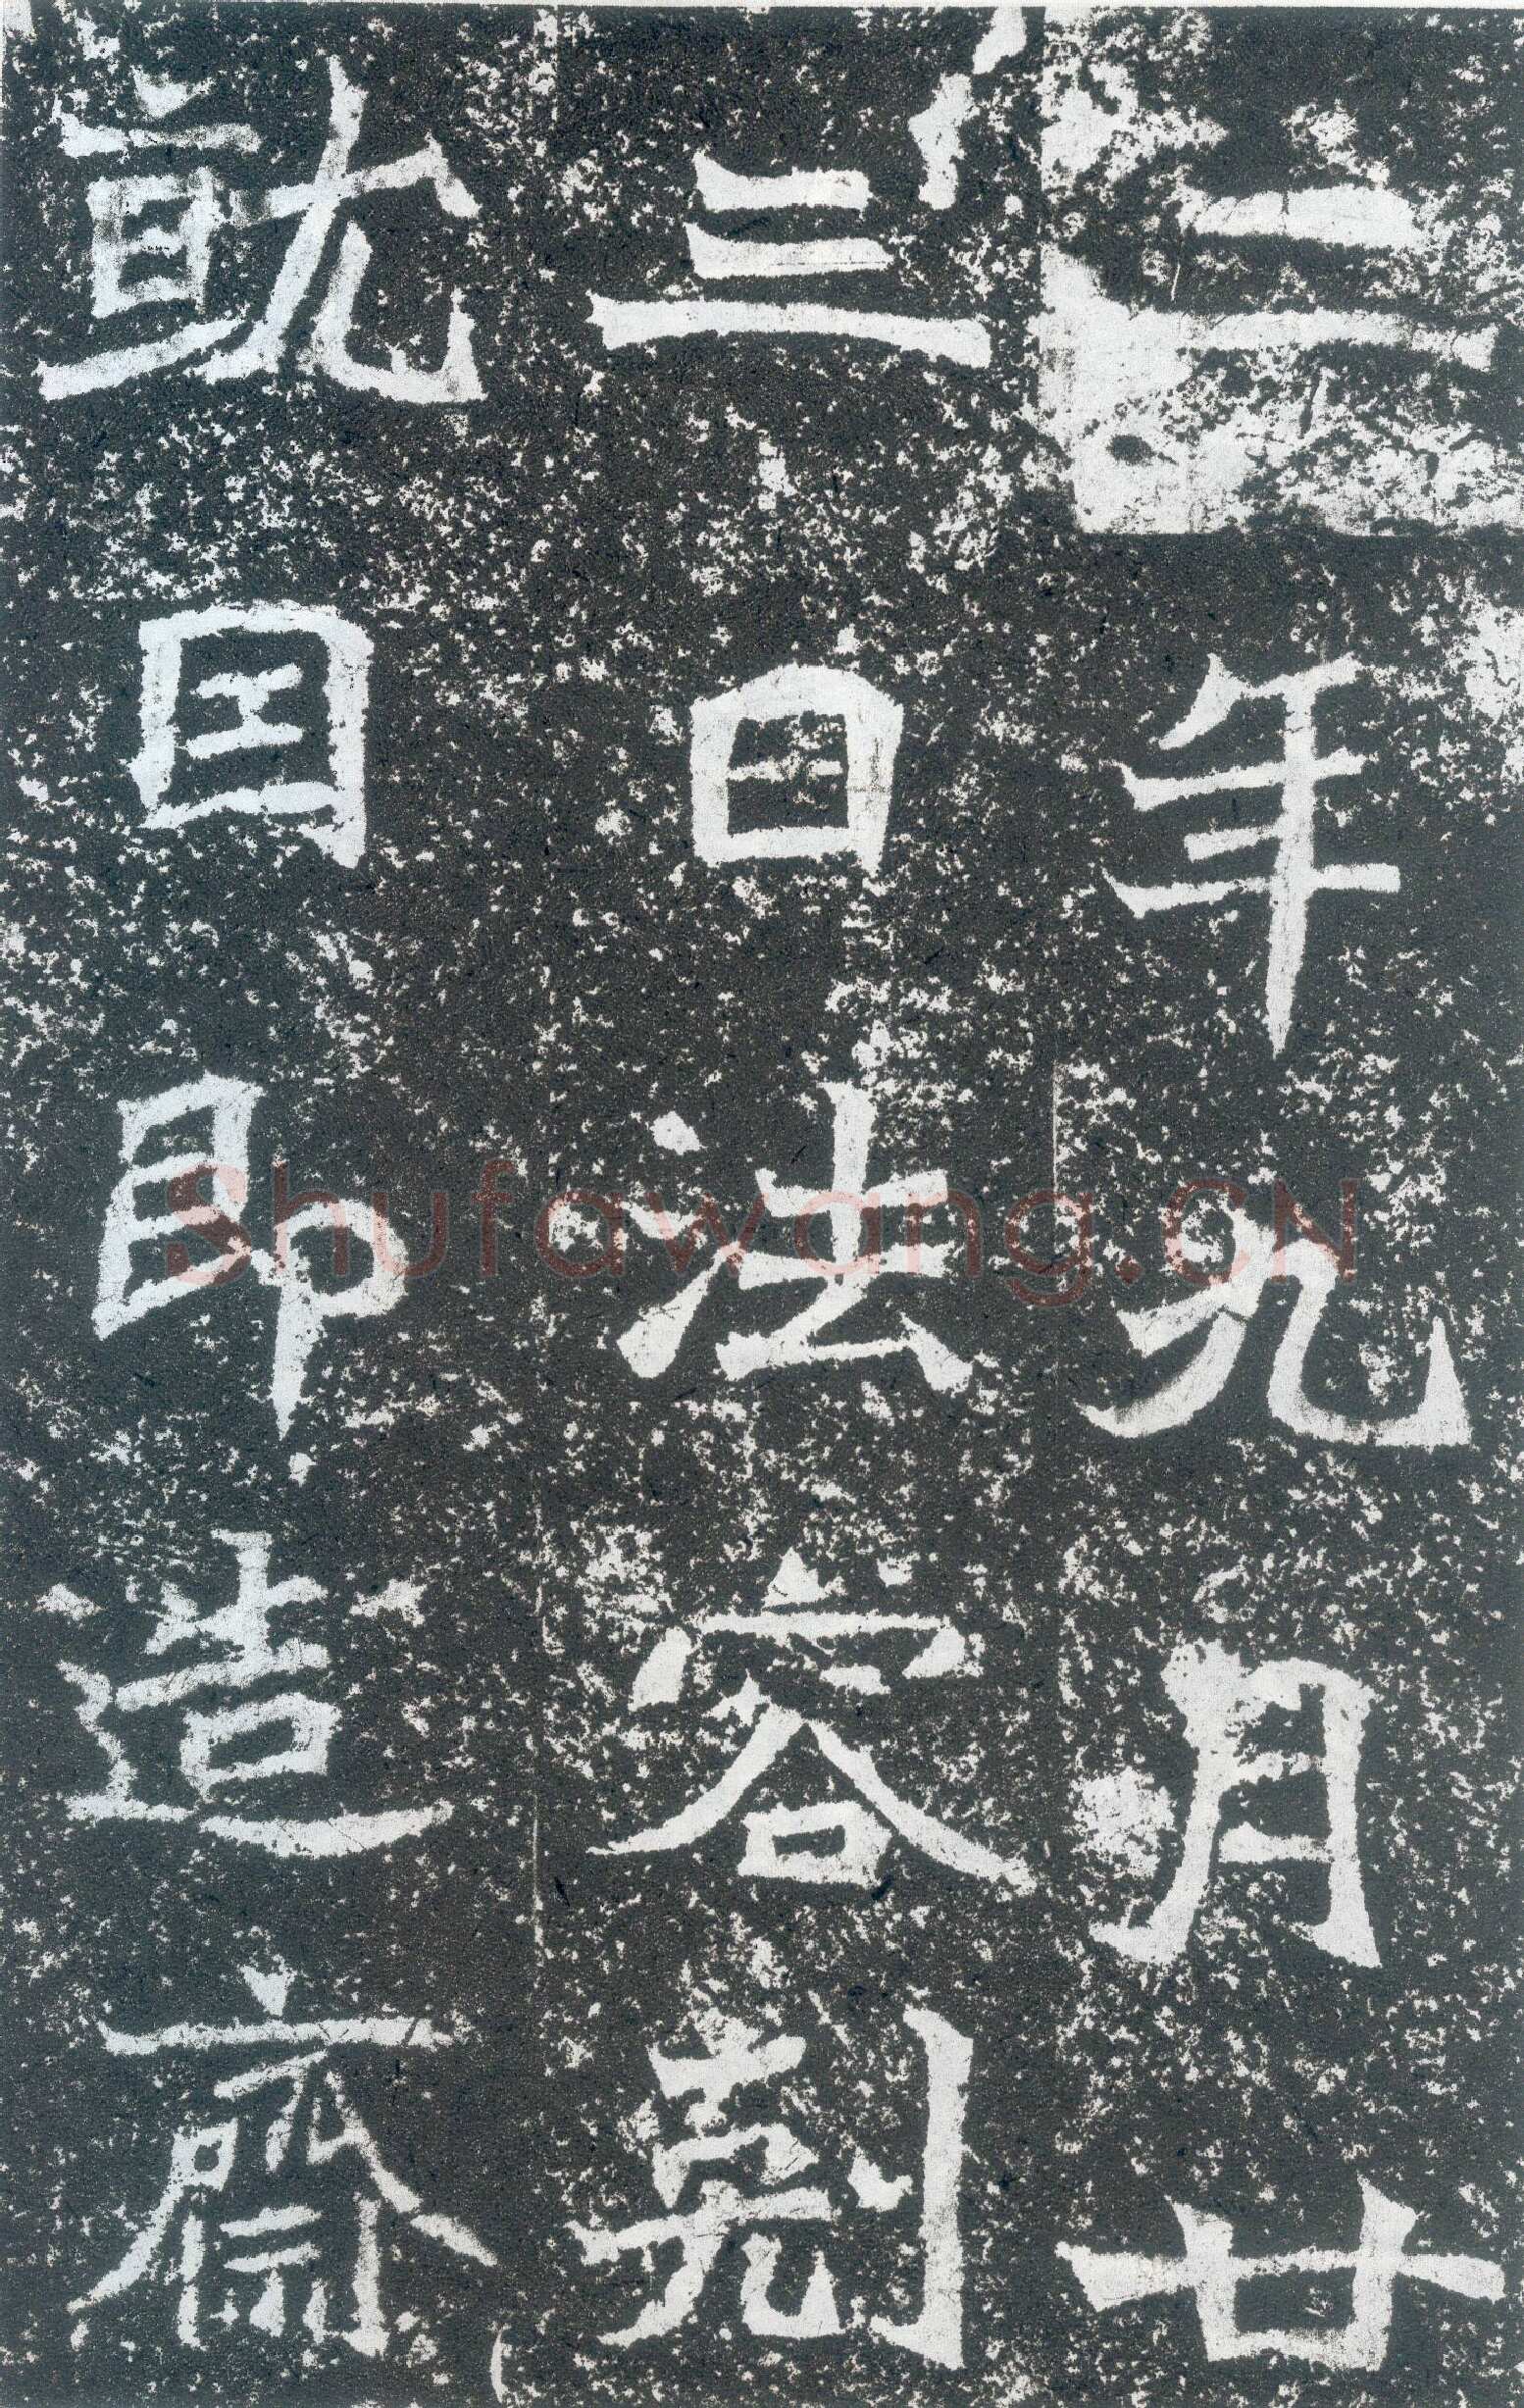 二年九月廿
三日法容剋
就囙即造齋
Shufawang.CN